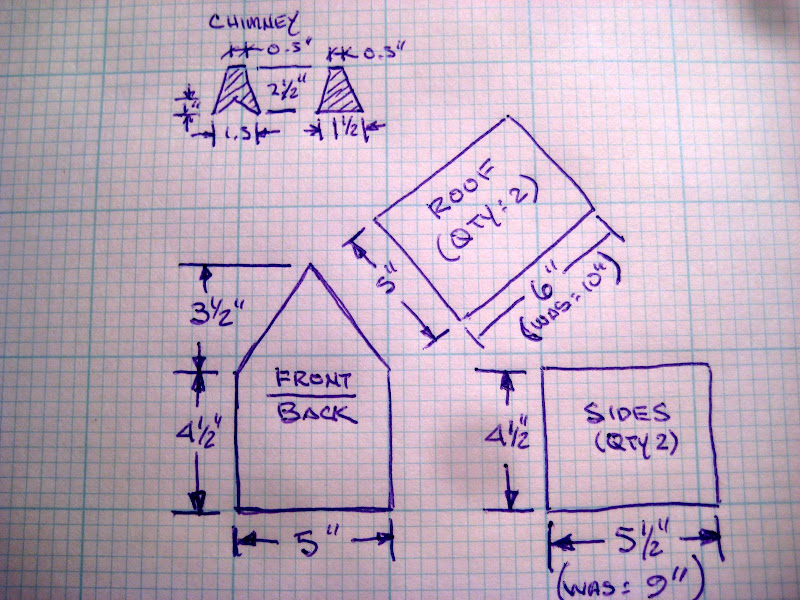 CHIMNEY
0.5"
0.5"
2½"
1"
1.5
1½
ROOF
(QTY: 2)
5"
6"
(WAS = 10")
3½"
FRONT
BACK
4½"
5"
SIDES
(QTY 2)
4½"
5½"
(WAS = 9")